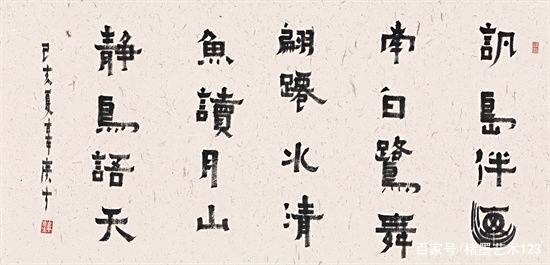 島伴
南白鷺舞
翩躚水清
魚讀月山
靜鳥語天
己亥夏
百家号/楮墨艺术123